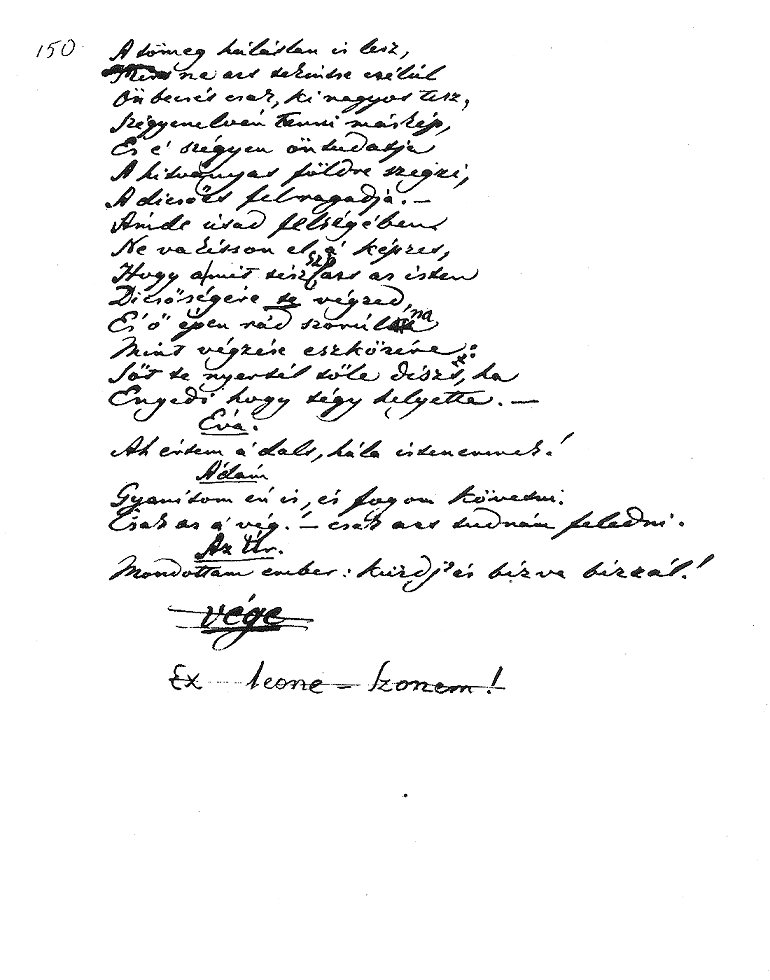 150
A tömeg hálátlan is lesz,
ne azt tekintse czélúl
Ön becsét csak, ki nagyot tesz,
Szégyenelvén tenni máskép,
És é szégyen öntudatja
A hitványat földre szegzi,
A dicsőt felragadja. –
Amde útad felségében
Ne vakítson el, a' képzet,
Hogy a'mit téssz, azt az isten
Dicsőségére te végzed,
És ő épen rád szorúlna
Mint végzése eszközére:
Sőt te nyertél tőle díszt, ha
Engedi hogy tégy helyette. –
Éva.
Ah értem a' dalt, hála istenemnek!
Ádám
Gyanitom én is, és fogom követni.
Csak az a' vég! – csak azt tudnám feledni.
Az Úr.
Mondottam ember: küzdj' és bízva bízzál!
vége
Ex leone – Izonem!